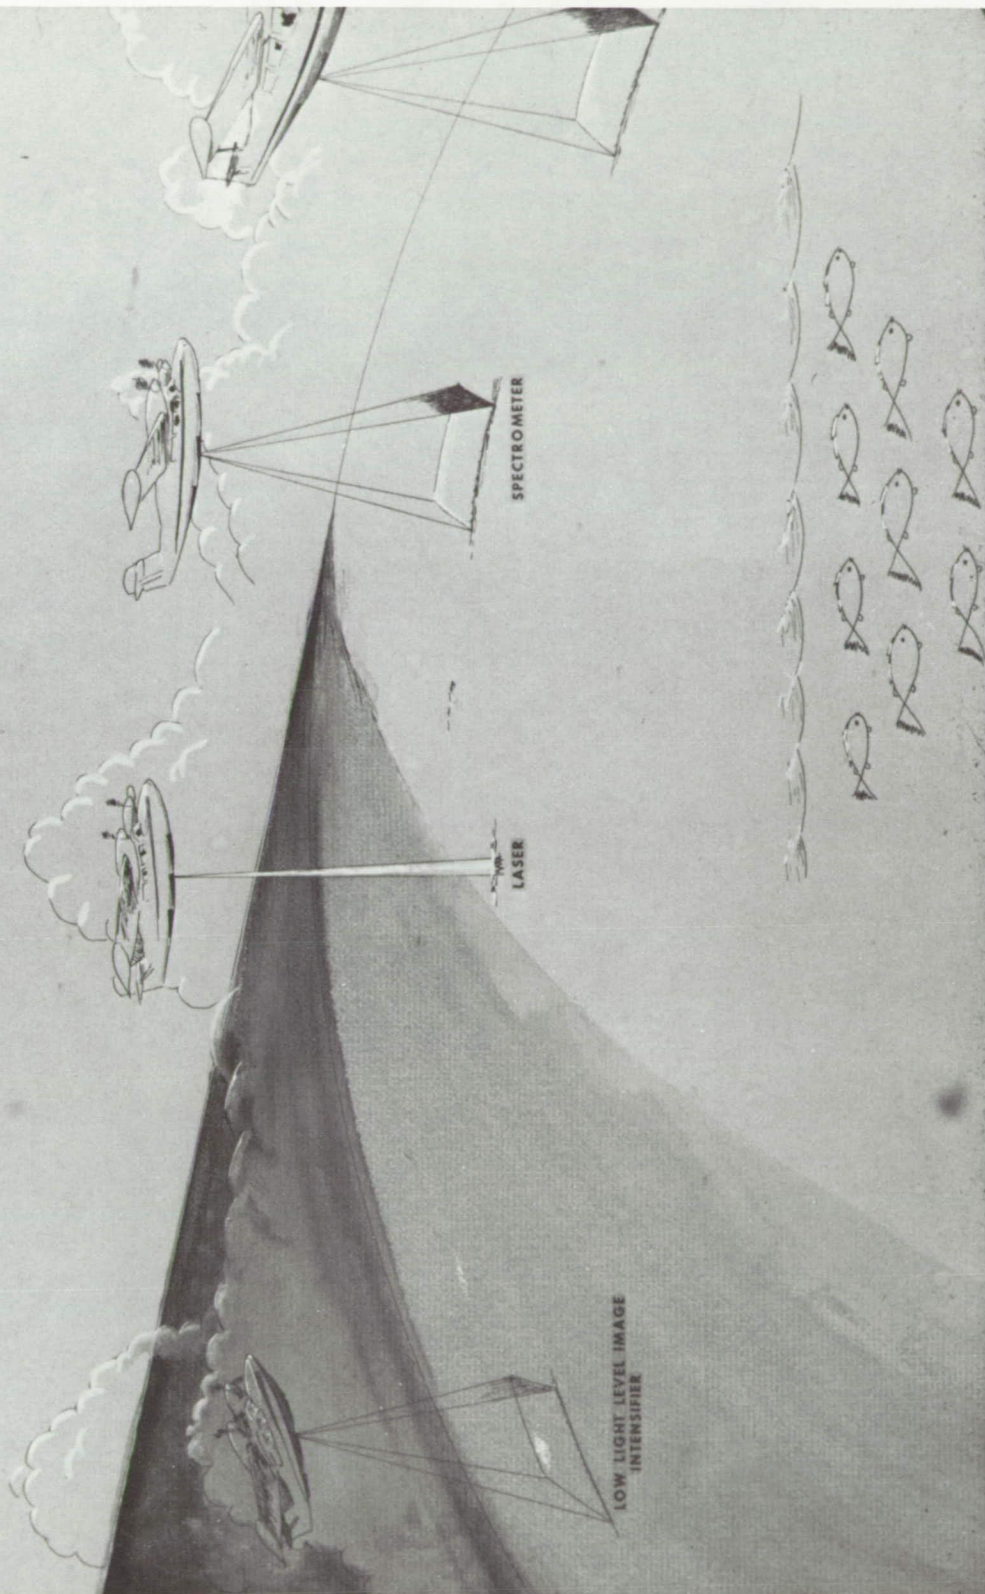 LOW LIGHT LEVEL IMAGE
INTENSIFIER
LASER
SPECTROMETER